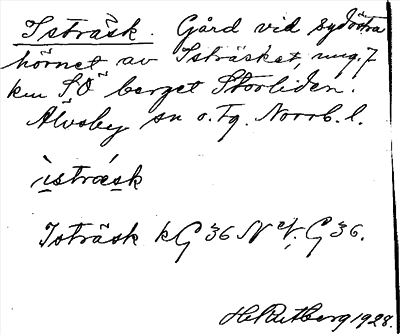 Isträsk. Gård vid sydöstra
hörnet av Isträsket, ung. 7
km SÖ berget Storliden.
Älvsby sn o. Fg. Norrb. l.
ìstræsk
Isträsk kG 36 N G 36.
H. Rutberg 1928.